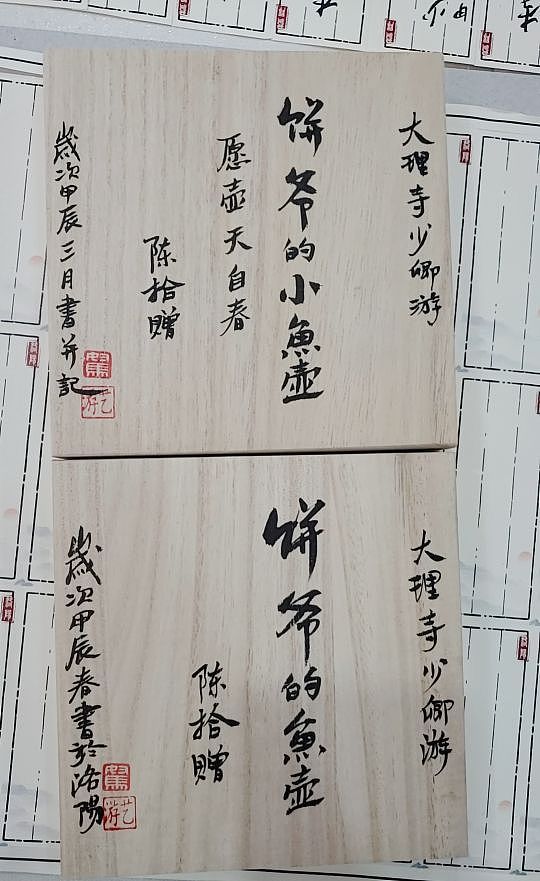 大理寺少卿游
饼爷的小魚壶
愿壶天自春
陈拾赠
歲次甲辰三月書并記
大理寺少卿游
饼爷的魚壶
陈拾赠
歲次甲辰春書於洛陽